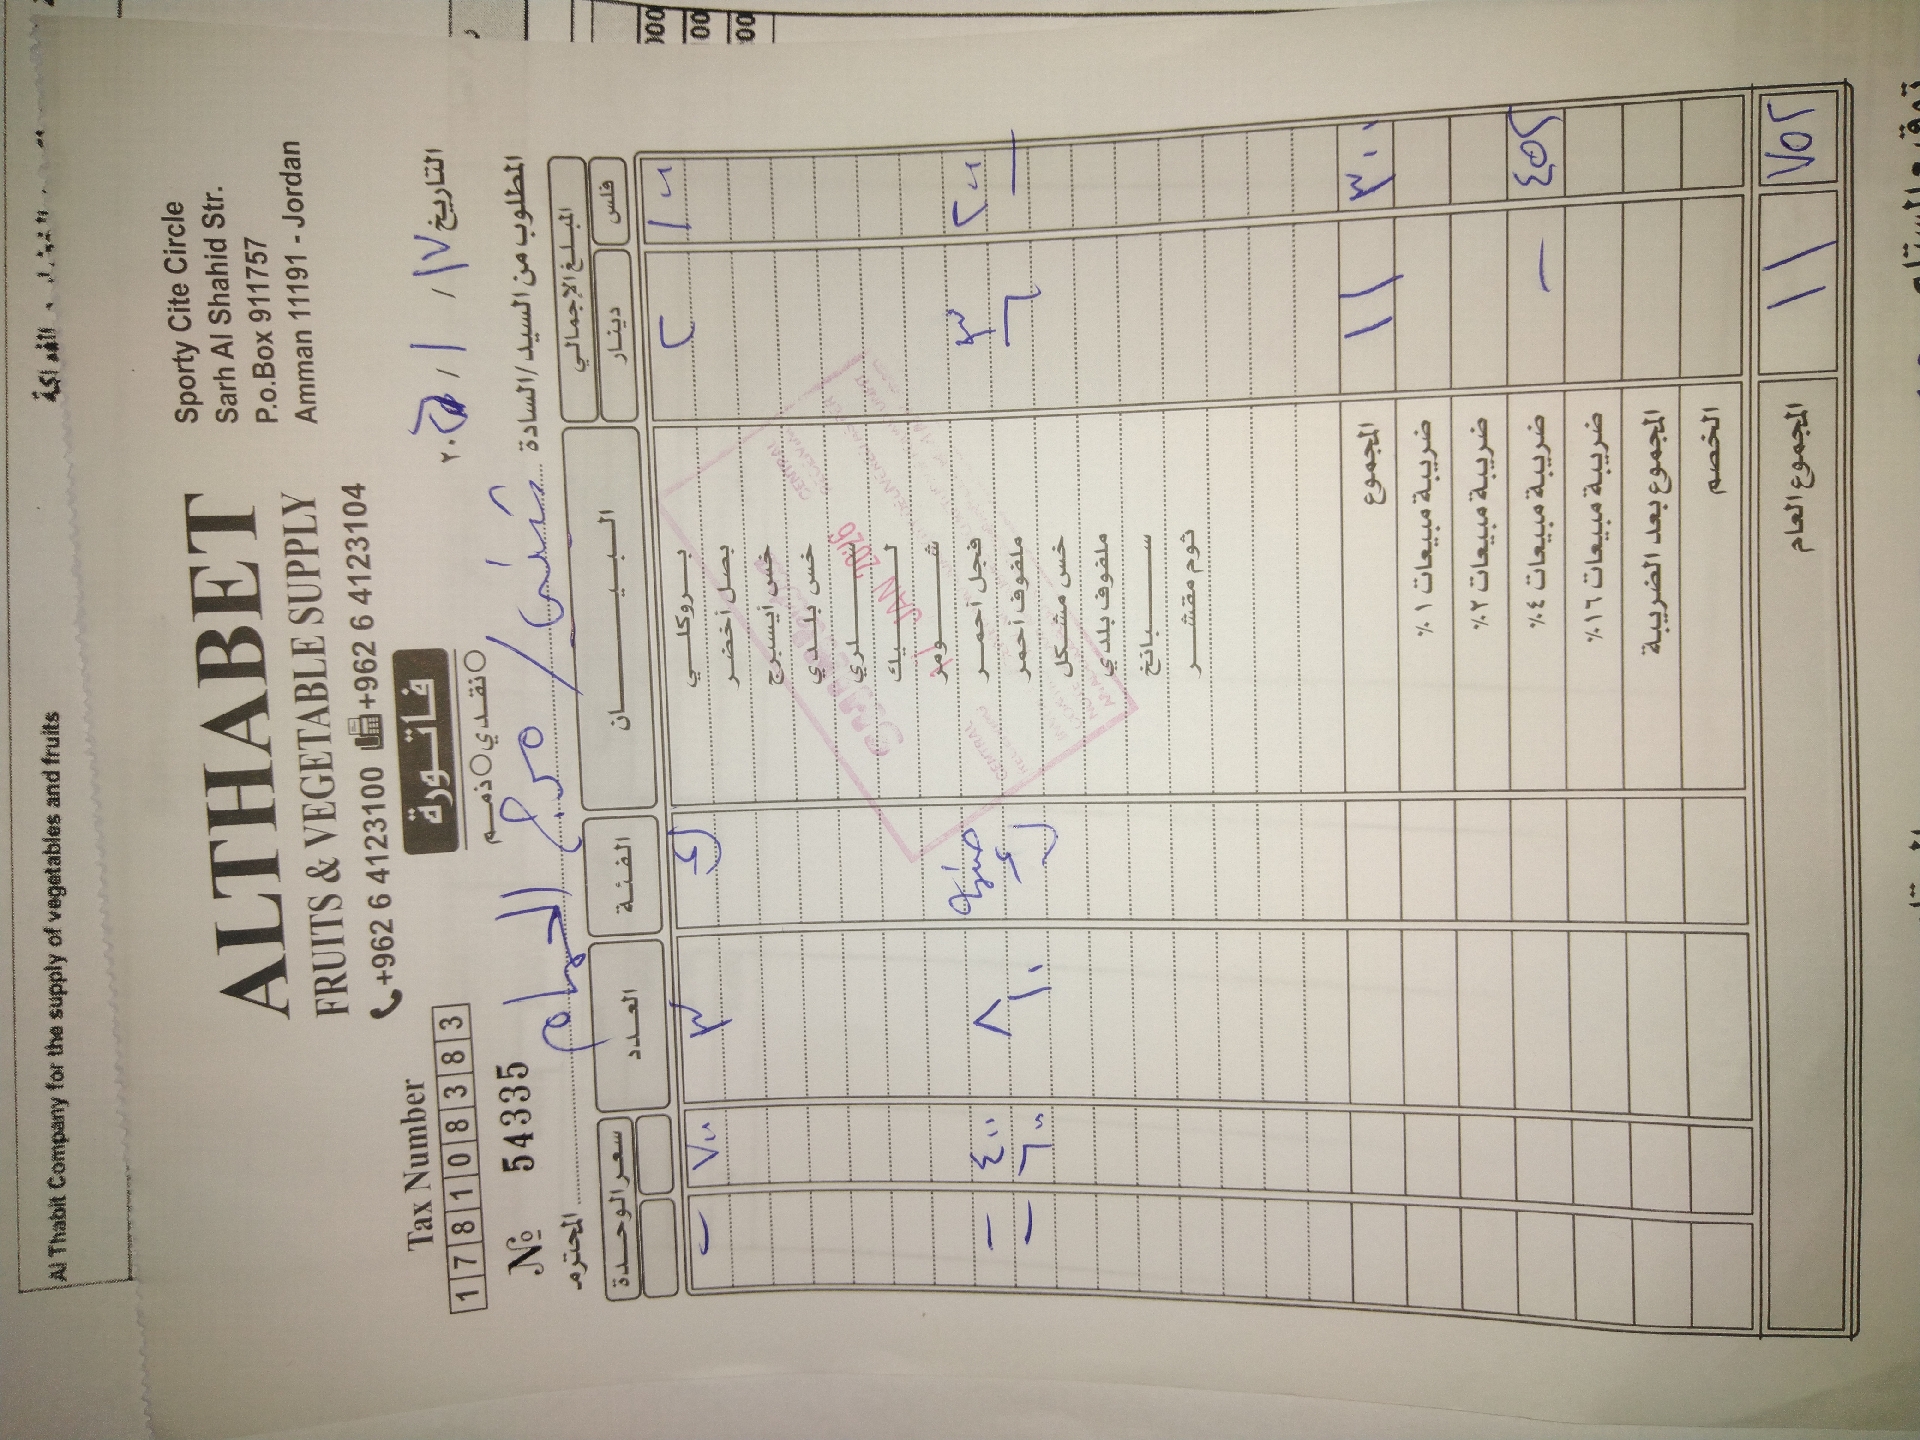 Al Thabit Company for the supply of vegetables and fruits
ALTHABET
FRUITS & VEGETABLE SUPPLY
+962 6 4123100 +962 6 4123104
Sporty Cite Circle
Sarh Al Shahid Str.
P.o.Box 911757
Amman 11191 - Jordan
Tax Number
1 7 8 1 0 8 3 8 3
فاتورة
نقدي ذمم
التاريخ ١٧ / ١ /
№ 54335
المطلوب من السيد/السادة
المحترم
المبلغ الإجمالي البيــــان الفئة العدد سعر الوحدة
فلس دينار
بروكلي ٢ ١٠٠ ٣ ٧٠٠
بصل أخضر
خس أيسبرج
خس بلدي
سلري
ليك
شومر
فجل أحمر ٣ ٢٠٠ ٨ ٤٠٠
ملفوف أحمر ٦ - ١٠ - ٦٠٠
خس مشكل
ملفوف بلدي
سبانخ
ثوم مقشر
CENTRAL
JAN 2026
المجموع ١١ ٣٠٠
ضريبة مبيعات ١%
ضريبة مبيعات ٢%
ضريبة مبيعات ٤% - ٤٥٢
ضريبة مبيعات ١٦%
المجموع بعد الضريبة
الخصم
المجموع العام ١١ ٧٥٢